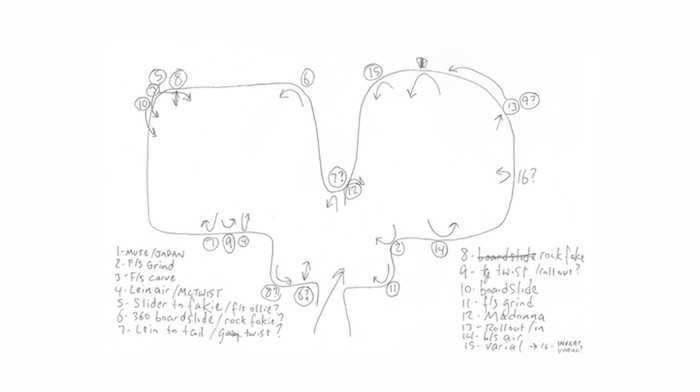 5
8
7
10
6
15
13
9?
7?
12
16?
7
9
4
2
14
8?
6?
11
1 - MUTE/JAPAN
2 - F/s Grind
3 - F/s carve
4 - Lein air / McTWIST
5 - Slider to fakie / f/s ollie?
6 - 360 boardslide / rock fakie?
7 - Lein to tail / twist?
8 - boardslide rock fakie
9 - twist / rollout?
10 - boardslide
11 - f/s grind
12 - Madonna
13 - Rollout/in
14 - b/s air
15 - varial → 16 -